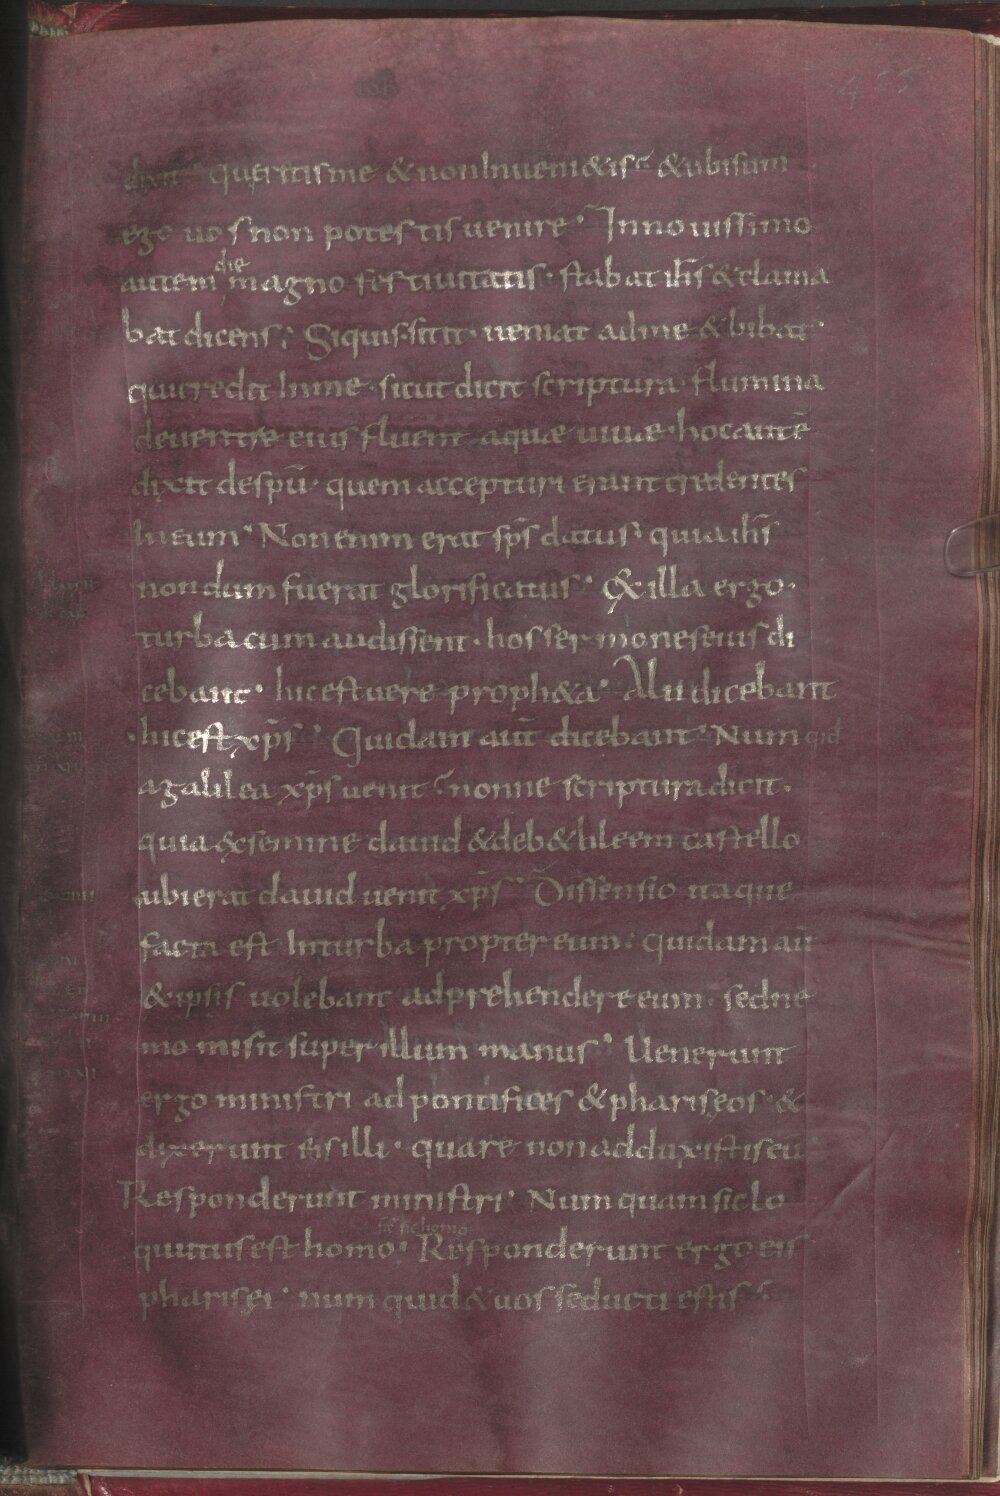 dixit queritis me & non Inueni&is & ubi sum
ego uos non potestis uenire Innouissimo
die
autem magno festiuitatis · stabat ihs & clama
bat dicens Siquis sitit · ueniat ad me & bibat
qui credit Inme · sicut dicit scriptura · flumina
deuentre eius fluent aquae uiuae · hoc autē
dixit despū · quem accepturi erunt credentes
Ineum · Non enim erat sps datus · quia ihs
nondum fuerat glorificatus · Ex illa ergo ·
turba cum audissent · hos sermones eius di
cebant · hic est uere proph&a · Alii dicebant
· hic est xps · Quidam aūt dicebant · Num quid
agalilea xps uenit nonne scriptura dicit ·
quia exsemine dauid & deb&hleem castello
ubi erat dauid uenit xps · Dissensio itaque
facta est Inturba propter eum · quidam aū
& ipsis uolebant adprehendere eum · sed ne
mo misit super illum manus · Uenerunt
ergo ministri ad pontifices & phariseos · &
dixerunt eis illi · quare non adduxistis eū
Responderunt ministri · Numquam sic lo
sic homo
quutus est homo · Responderunt ergo eis
pharisei · num quid & uos seducti estis